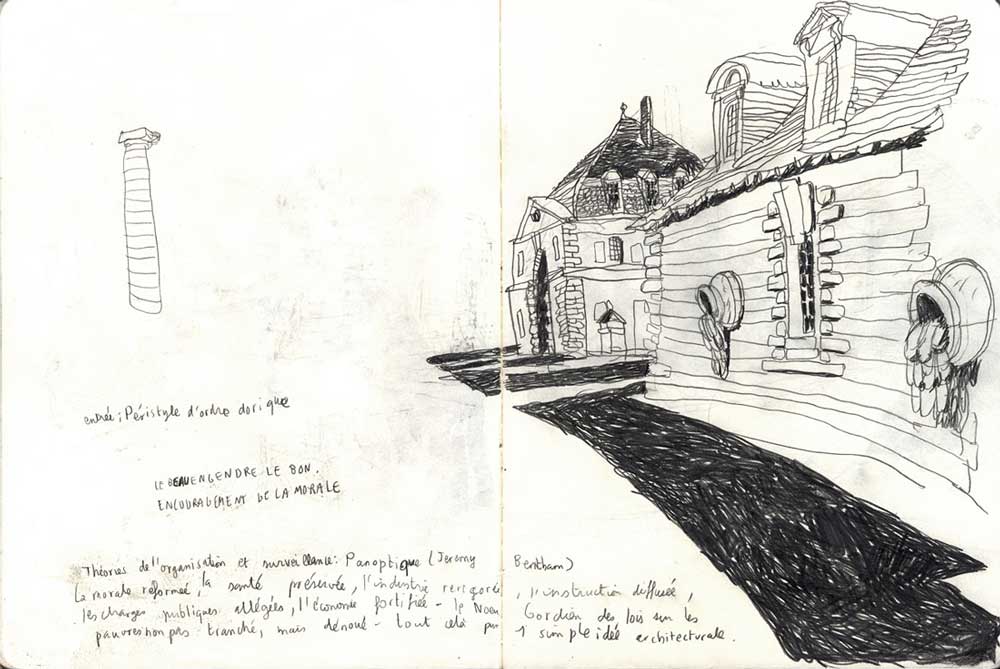 entrée: Péristyle d'ordre dorique
LE BEAU ENGENDRE LE BON.
ENCOURAGEMENT DE LA MORALE
Théories de l'organisation et surveillance: Panoptique (Jeremy Bentham)
La morale reformée, la santé préservée, l'industrie , l'instruction diffusée,
les charges publiques allégées, l'économie fortifiée - le Noeu Gordien des lois sur les
pauvres non pas tranché, mais dénoué - tout cela par 1 simple idée architecturale.